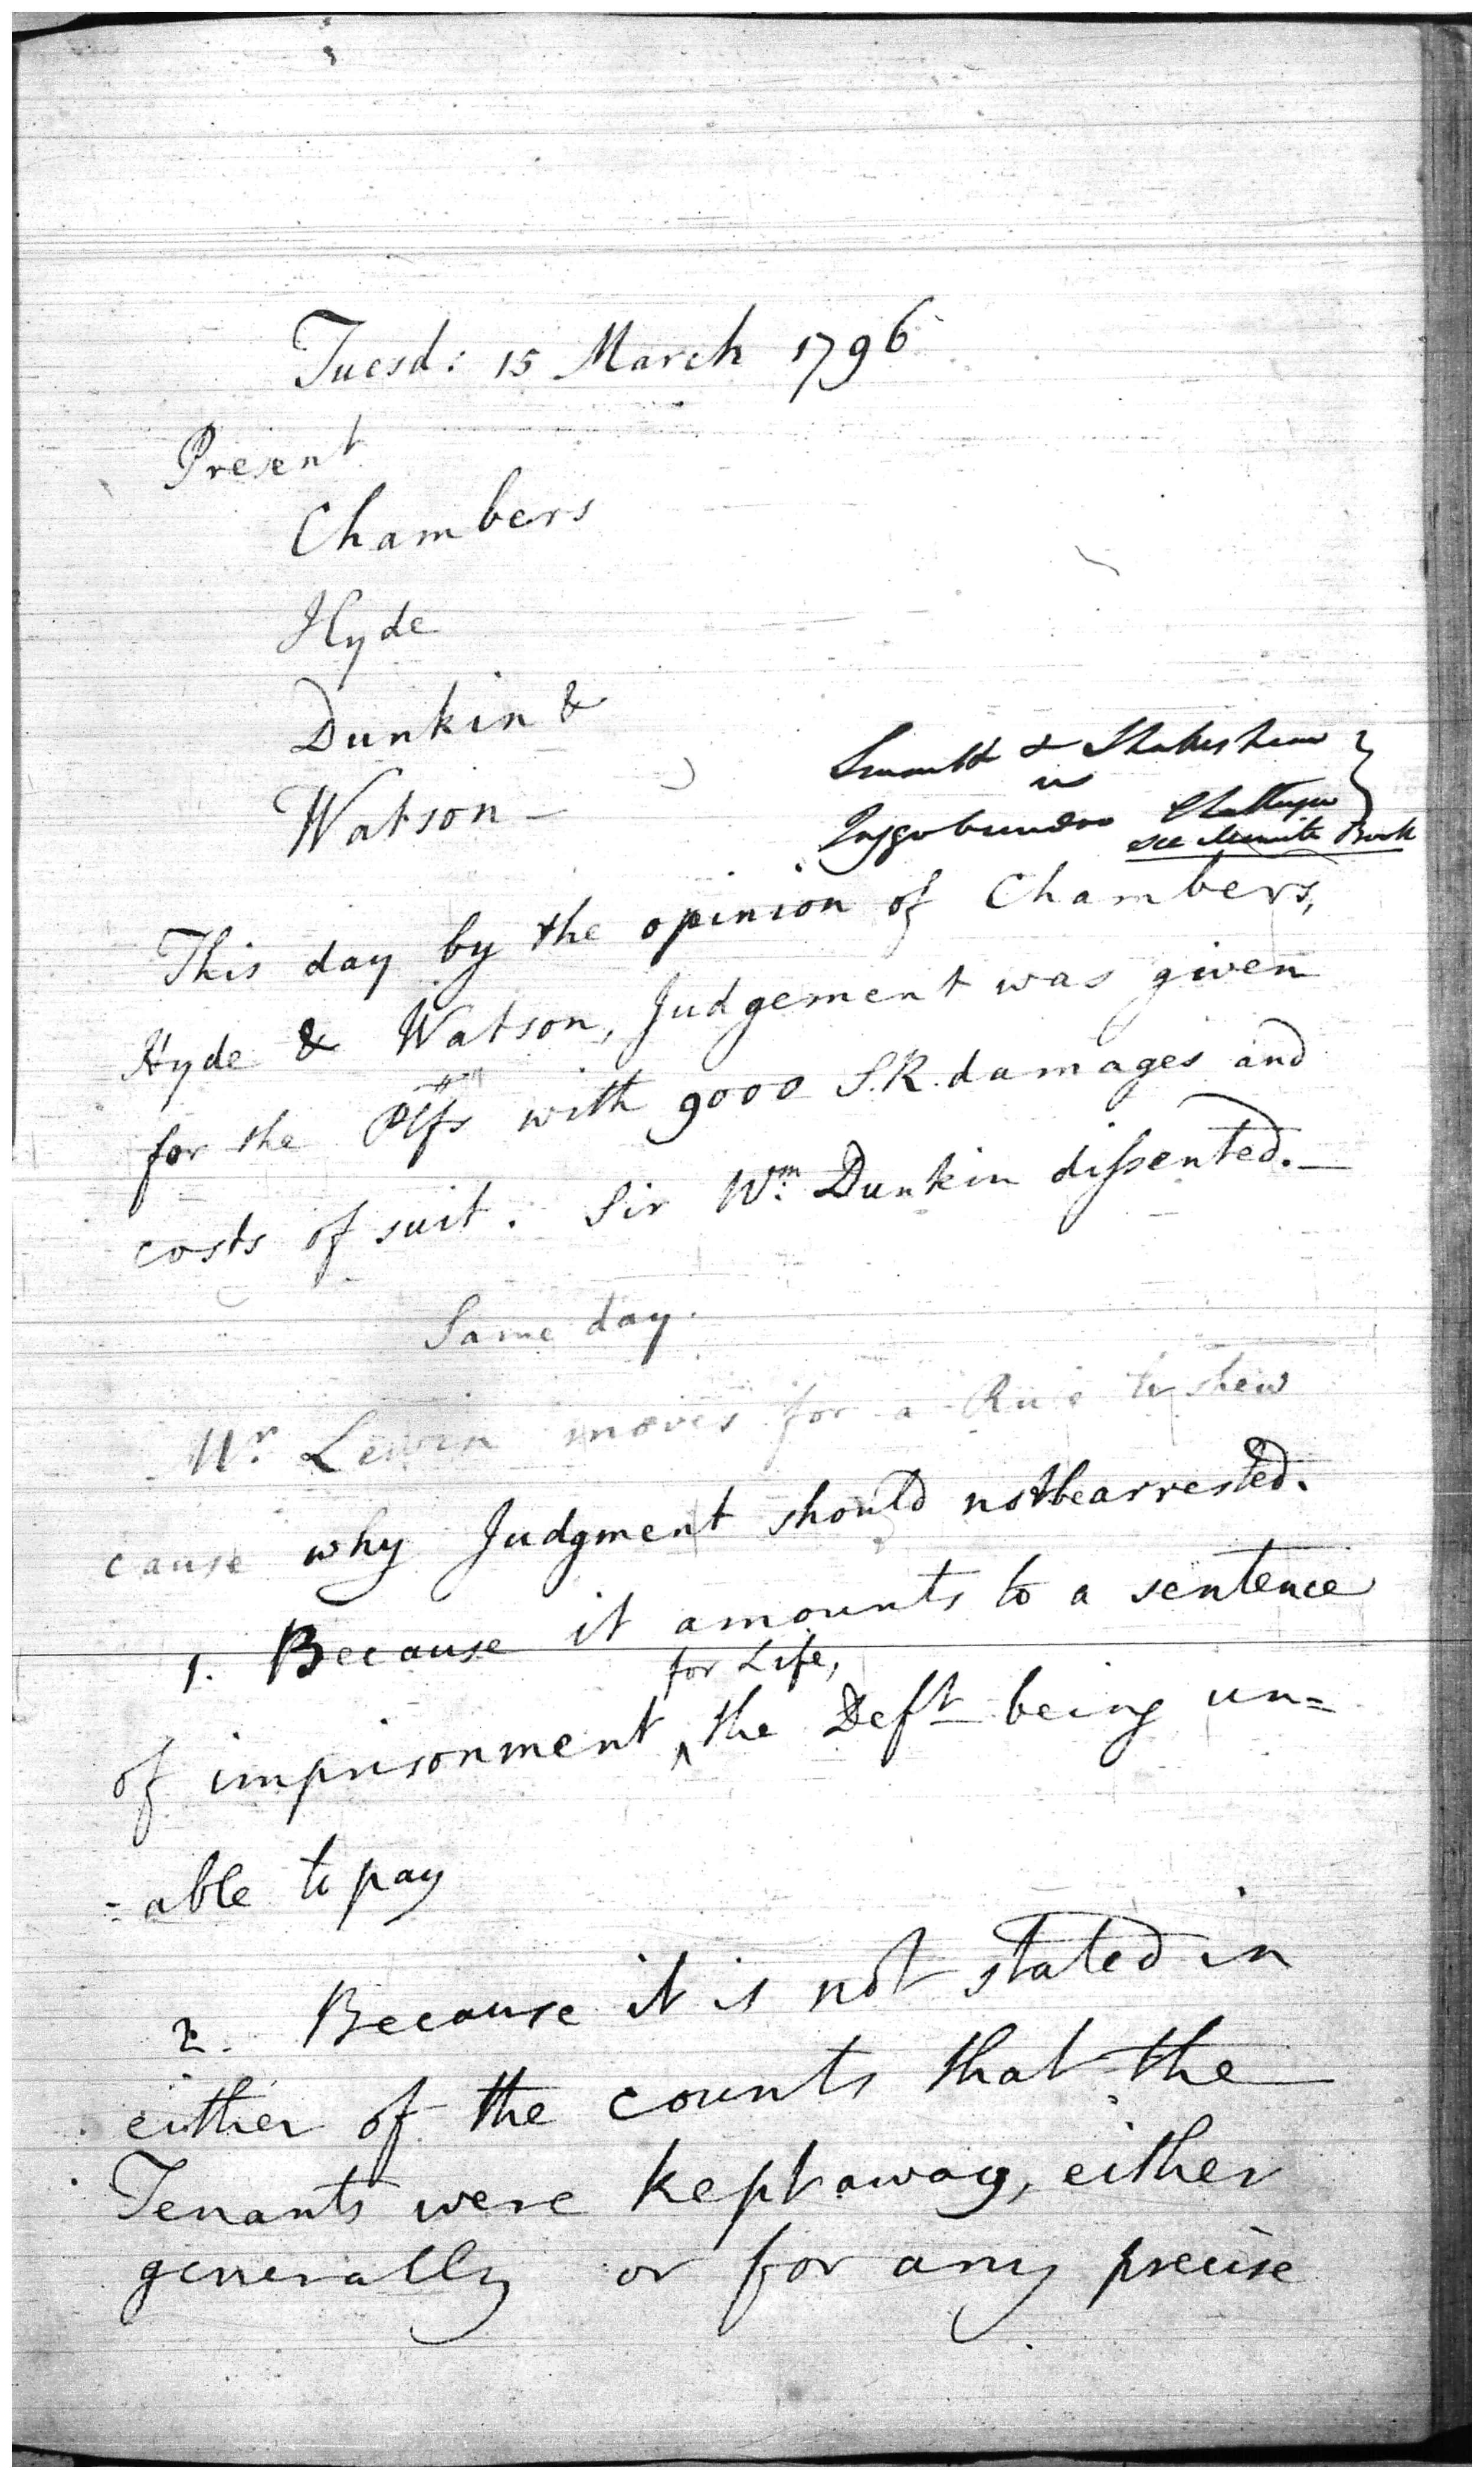 Tuesd: 15 March 1796
Present
Chambers
Hyde
Dunkin &
Watson –
& Shakeshear
vs
see Minute Book
This day by the opinion of Chambers,
Hyde & Watson, Judgement was given
for the Plfs with 9000 S.R. damages and
costs of suit. Sir Wm. Dunkin dissented. –
Same day.
Mr. Lewin moves for a Rule to shew
cause why Judgment should not be arrested.
1. Because it amounts to a sentence
for Life,
of imprisonment ‸ the Deft being un=
=able to pay
2. Because it is not stated in
either of the counts that the
Tenants were kept away, either
generally or for any precise